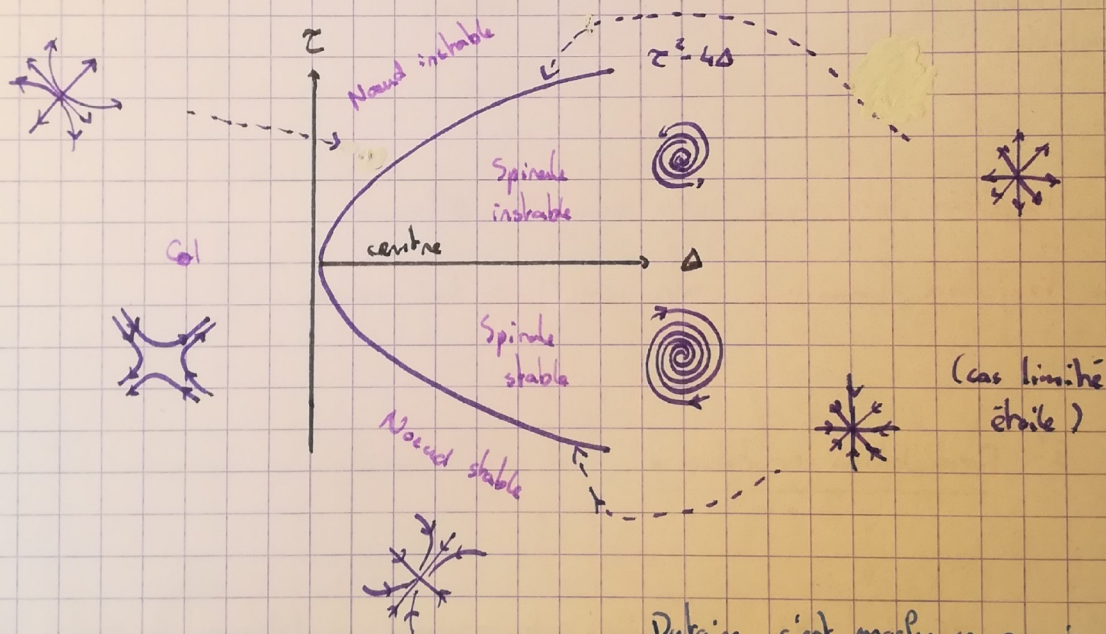 τ
Nœud instable
τ² - 4Δ
Spirale
instable
centre
Δ
Col
Spirale
stable
(cas limité
étoile)
Noeud stable
c'est